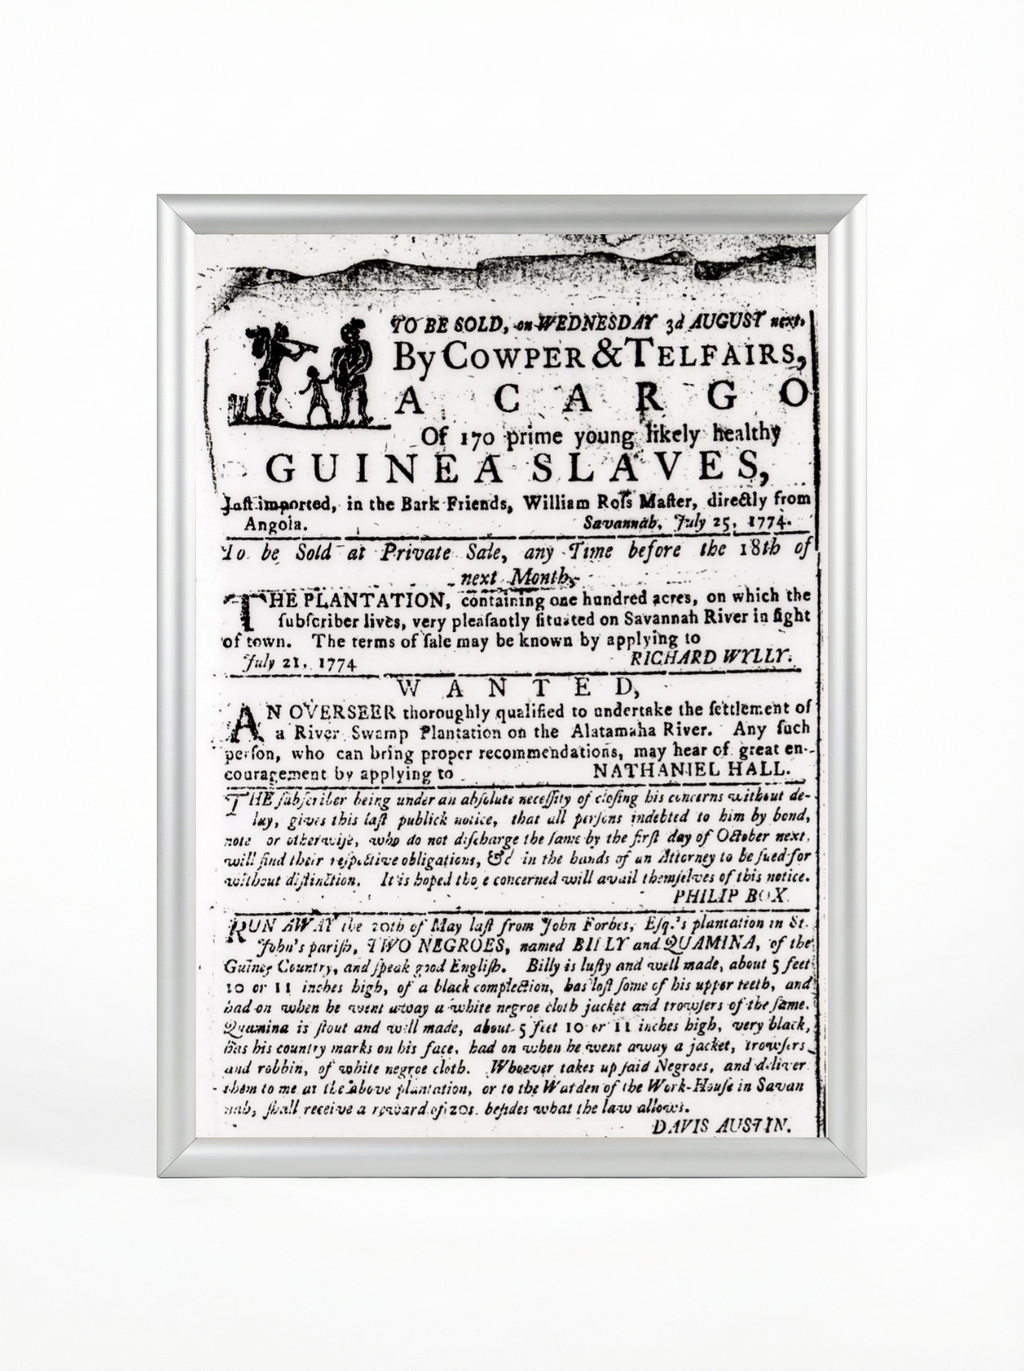 TO BE SOLD, on WEDNESDAY 3d AUGUST next,
By COWPER & TELFAIRS,
A CARGO
Of 170 prime young likely healthy
GUINEA SLAVES,
Just imported, in the Bark Friends, William Roſs Maſter, directly from
Angola. Savannah, July 25, 1774.
To be Sold at Private Sale, any Time before the 18th of
next Month,
THE PLANTATION, containing one hundred acres, on which the
ſubſcriber lives, very pleaſantly ſituated on Savannah River in ſight
of town. The terms of ſale may be known by applying to
July 21, 1774 RICHARD WYLLY.
WANTED,
AN OVERSEER thoroughly qualified to undertake the ſettlement of
a River Swamp Plantation on the Alatamaha River. Any ſuch
perſon, who can bring proper recommendations, may hear of great en-
couragement by applying to NATHANIEL HALL.
THE ſubſcriber being under an abſolute neceſſity of cloſing his concerns without de-
lay, gives this laſt publick notice, that all perſons indebted to him by bond,
note or otherwiſe, who do not diſcharge the ſame by the firſt day of October next,
will find their reſpective obligations, &c in the hands of an Attorney to be ſued for
without diſtinction. It is hoped thoſe concerned will avail themſelves of this notice.
PHILIP BOX.
RUN AWAY the 20th of May laſt from John Forbes, Eſq.'s plantation in St.
John's pariſh, TWO NEGROES, named BILLY and QUAMINA, of the
Guiney Country, and ſpeak good Engliſh. Billy is luſty and well made, about 5 feet
10 or 11 inches high, of a black complection, has loſt ſome of his upper teeth, and
had on when he went away a white negroe cloth jacket and trowſers of the ſame.
Quamina is ſtout and well made, about 5 feet 10 or 11 inches high, very black,
has his country marks on his face, had on when he went away a jacket, trowſers,
and robbin, of white negroe cloth. Whoever takes up ſaid Negroes, and deliver
them to me at the above plantation, or to the Warden of the Work-Houſe in Savan
nah, ſhall receive a reward of 20s. beſides what the law allows.
DAVIS AUSTIN.